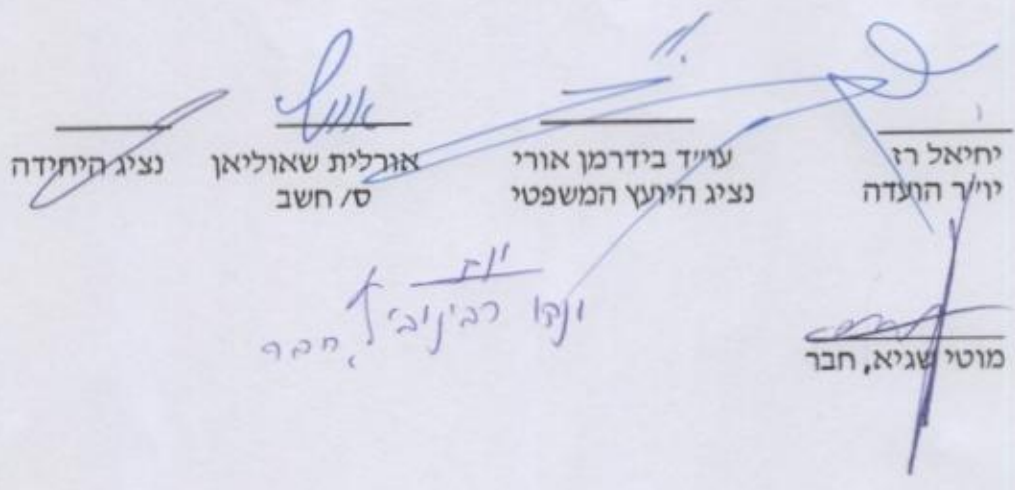 יחיאל רז
יו״ר הועדה
עו״ד בידרמן אורי
נציג היועץ המשפטי
אורלית שאוליאן
ס/ חשב
נציג היחידה
חבר
מוטי שגיא, חבר